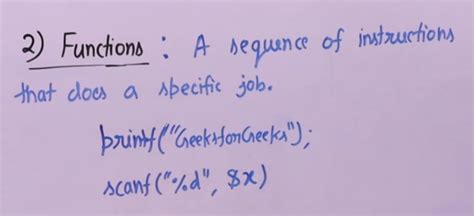 2) Functions : A sequence of instructions
that does a specific job.
printf("GeeksforGeeks");
scanf("%d", &x)